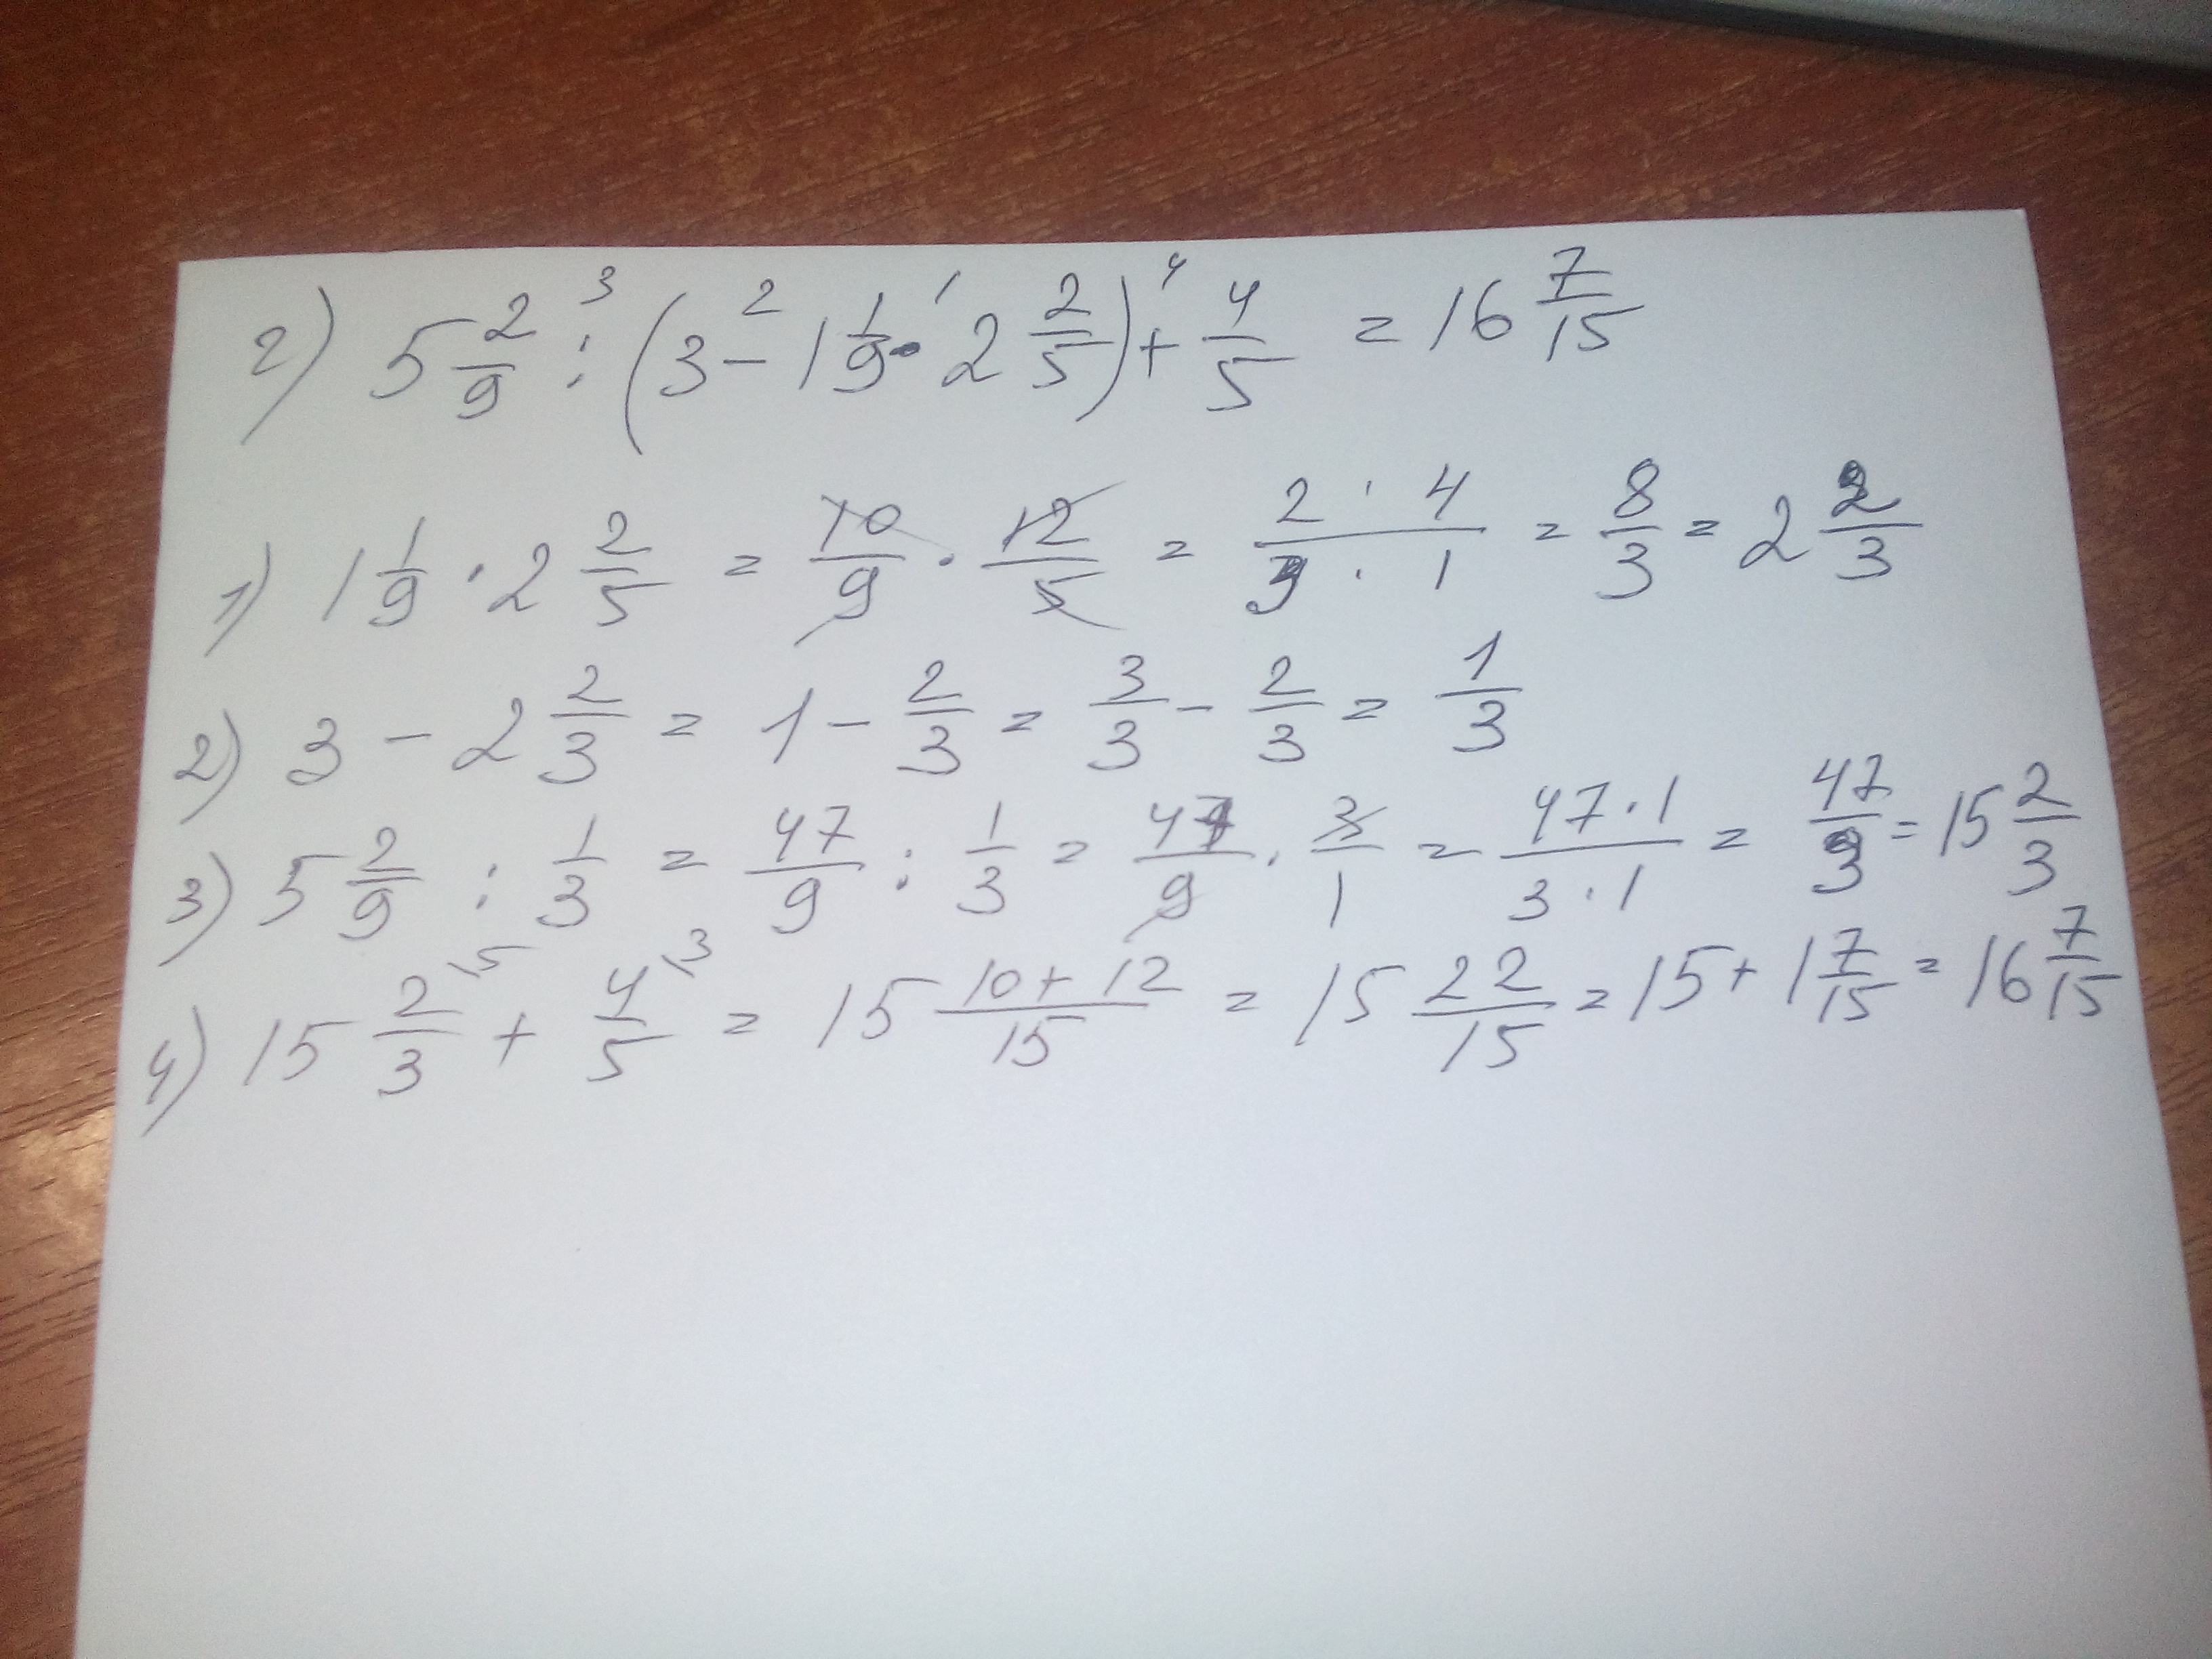 2) 5 2/9 : (3 - 1 1/9 · 2 2/5) + 4/5 = 16 7/15
1) 1 1/9 · 2 2/5 = 10/9 · 12/5 = 2 · 4 / 3 · 1 = 8/3 = 2 2/3
2) 3 - 2 2/3 = 1 - 2/3 = 3/3 - 2/3 = 1/3
3) 5 2/9 : 1/3 = 47/9 : 1/3 = 47/9 · 3/1 = 47 · 1 / 3 · 1 = 47/3 = 15 2/3
4) 15 2/3 + 4/5 = 15 10 + 12 / 15 = 15 22/15 = 15 + 1 7/15 = 16 7/15